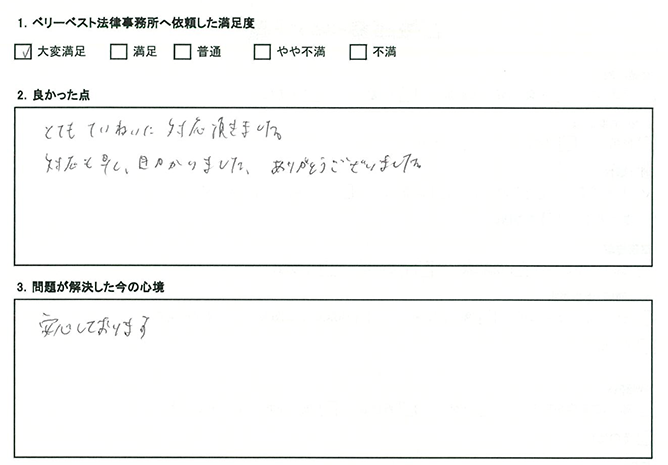 1. ベリーベスト法律事務所へ依頼した満足度
☑ 大変満足 □ 満足 □ 普通 □ やや不満 □ 不満
2. 良かった点
とても ていねいに 対応 頂きました。
対応も早く、助かりました、ありがとうございました。
3. 問題が解決した今の心境
安心しております